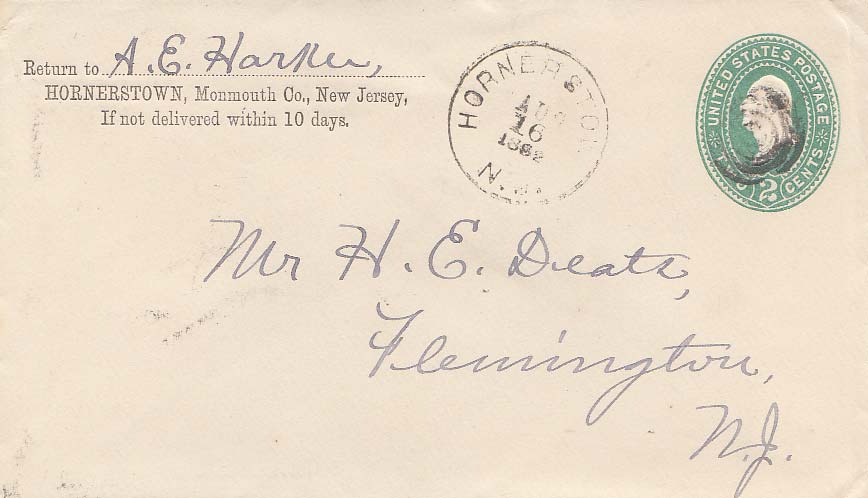 Return to A. E. Harker,
HORNERSTOWN, Monmouth Co., New Jersey,
If not delivered within 10 days.
HORNERSTO
AUG
16
N.J.
UNITED STATES POSTAGE
2 CENTS
Mr H. E. Deats,
Flemington,
N.J.